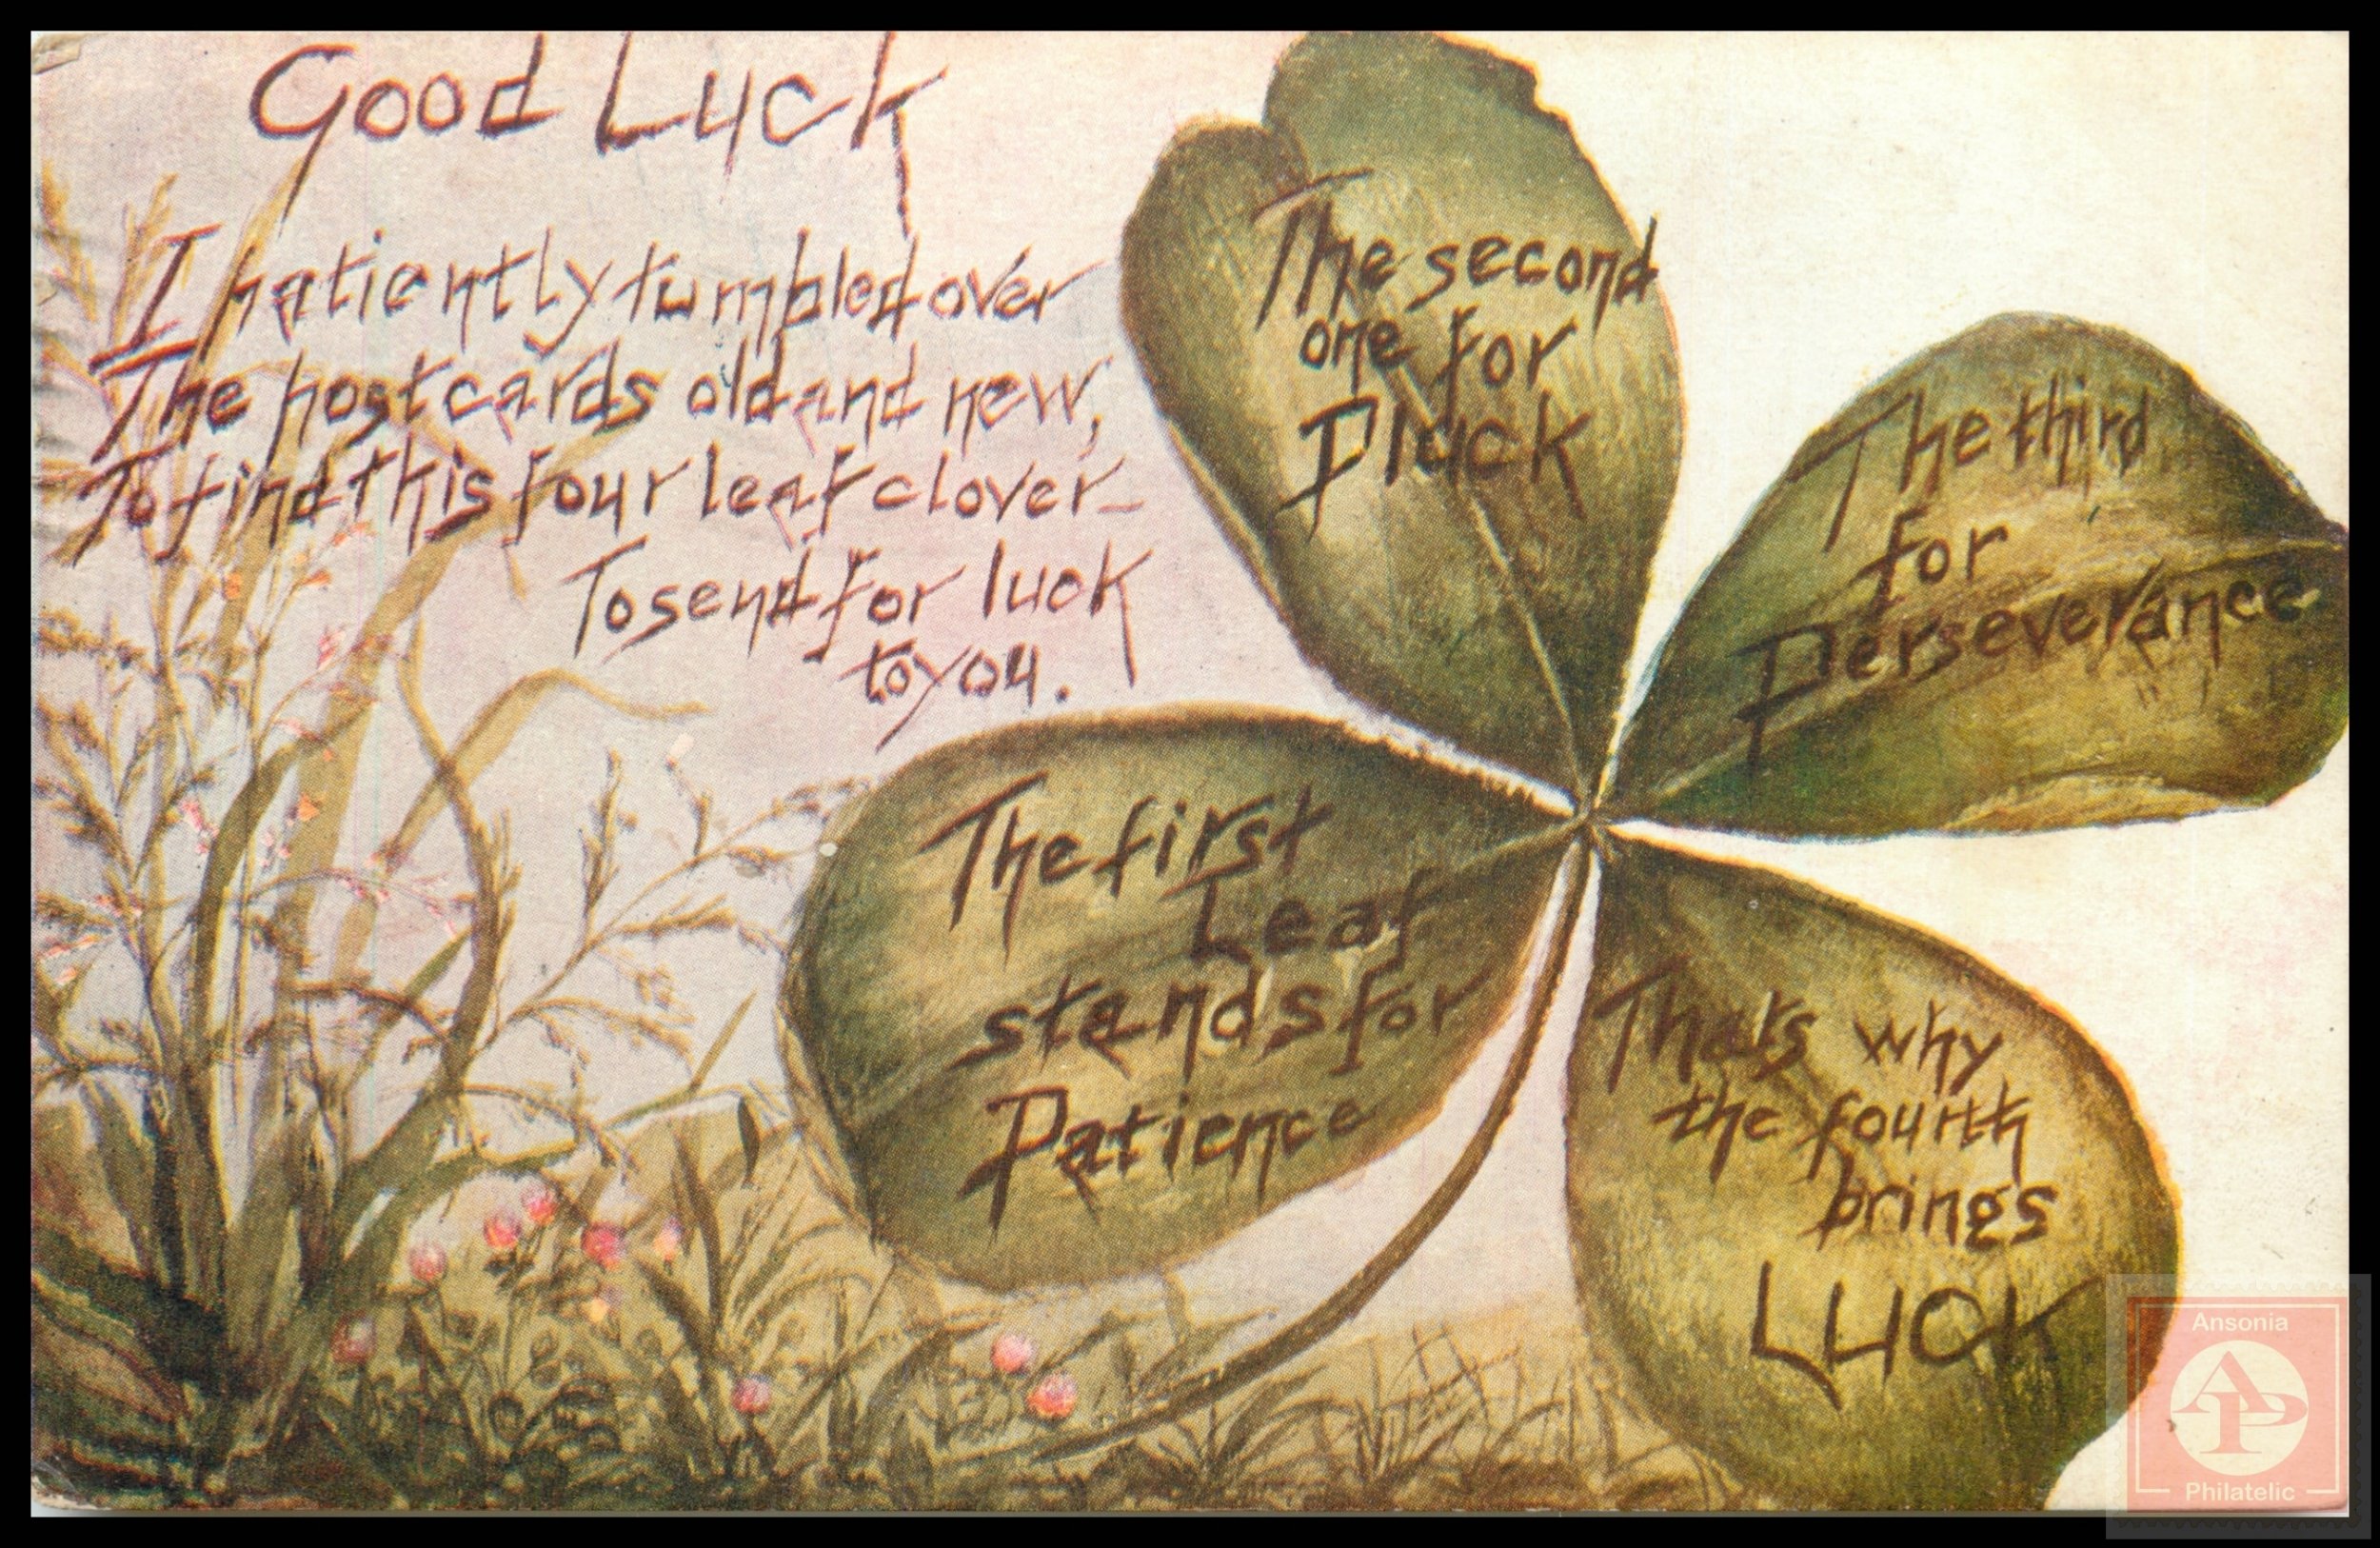 Good Luck
I patiently tumbled over
The postcards old and new,
To find this four leaf clover_
To send for luck
to you.
The first
Leaf
stands for
Patience
The second
one for
Pluck
The third
for
Perseverance
Thats why
the fourth
brings
LUCK
Ansonia
AP
Philatelic